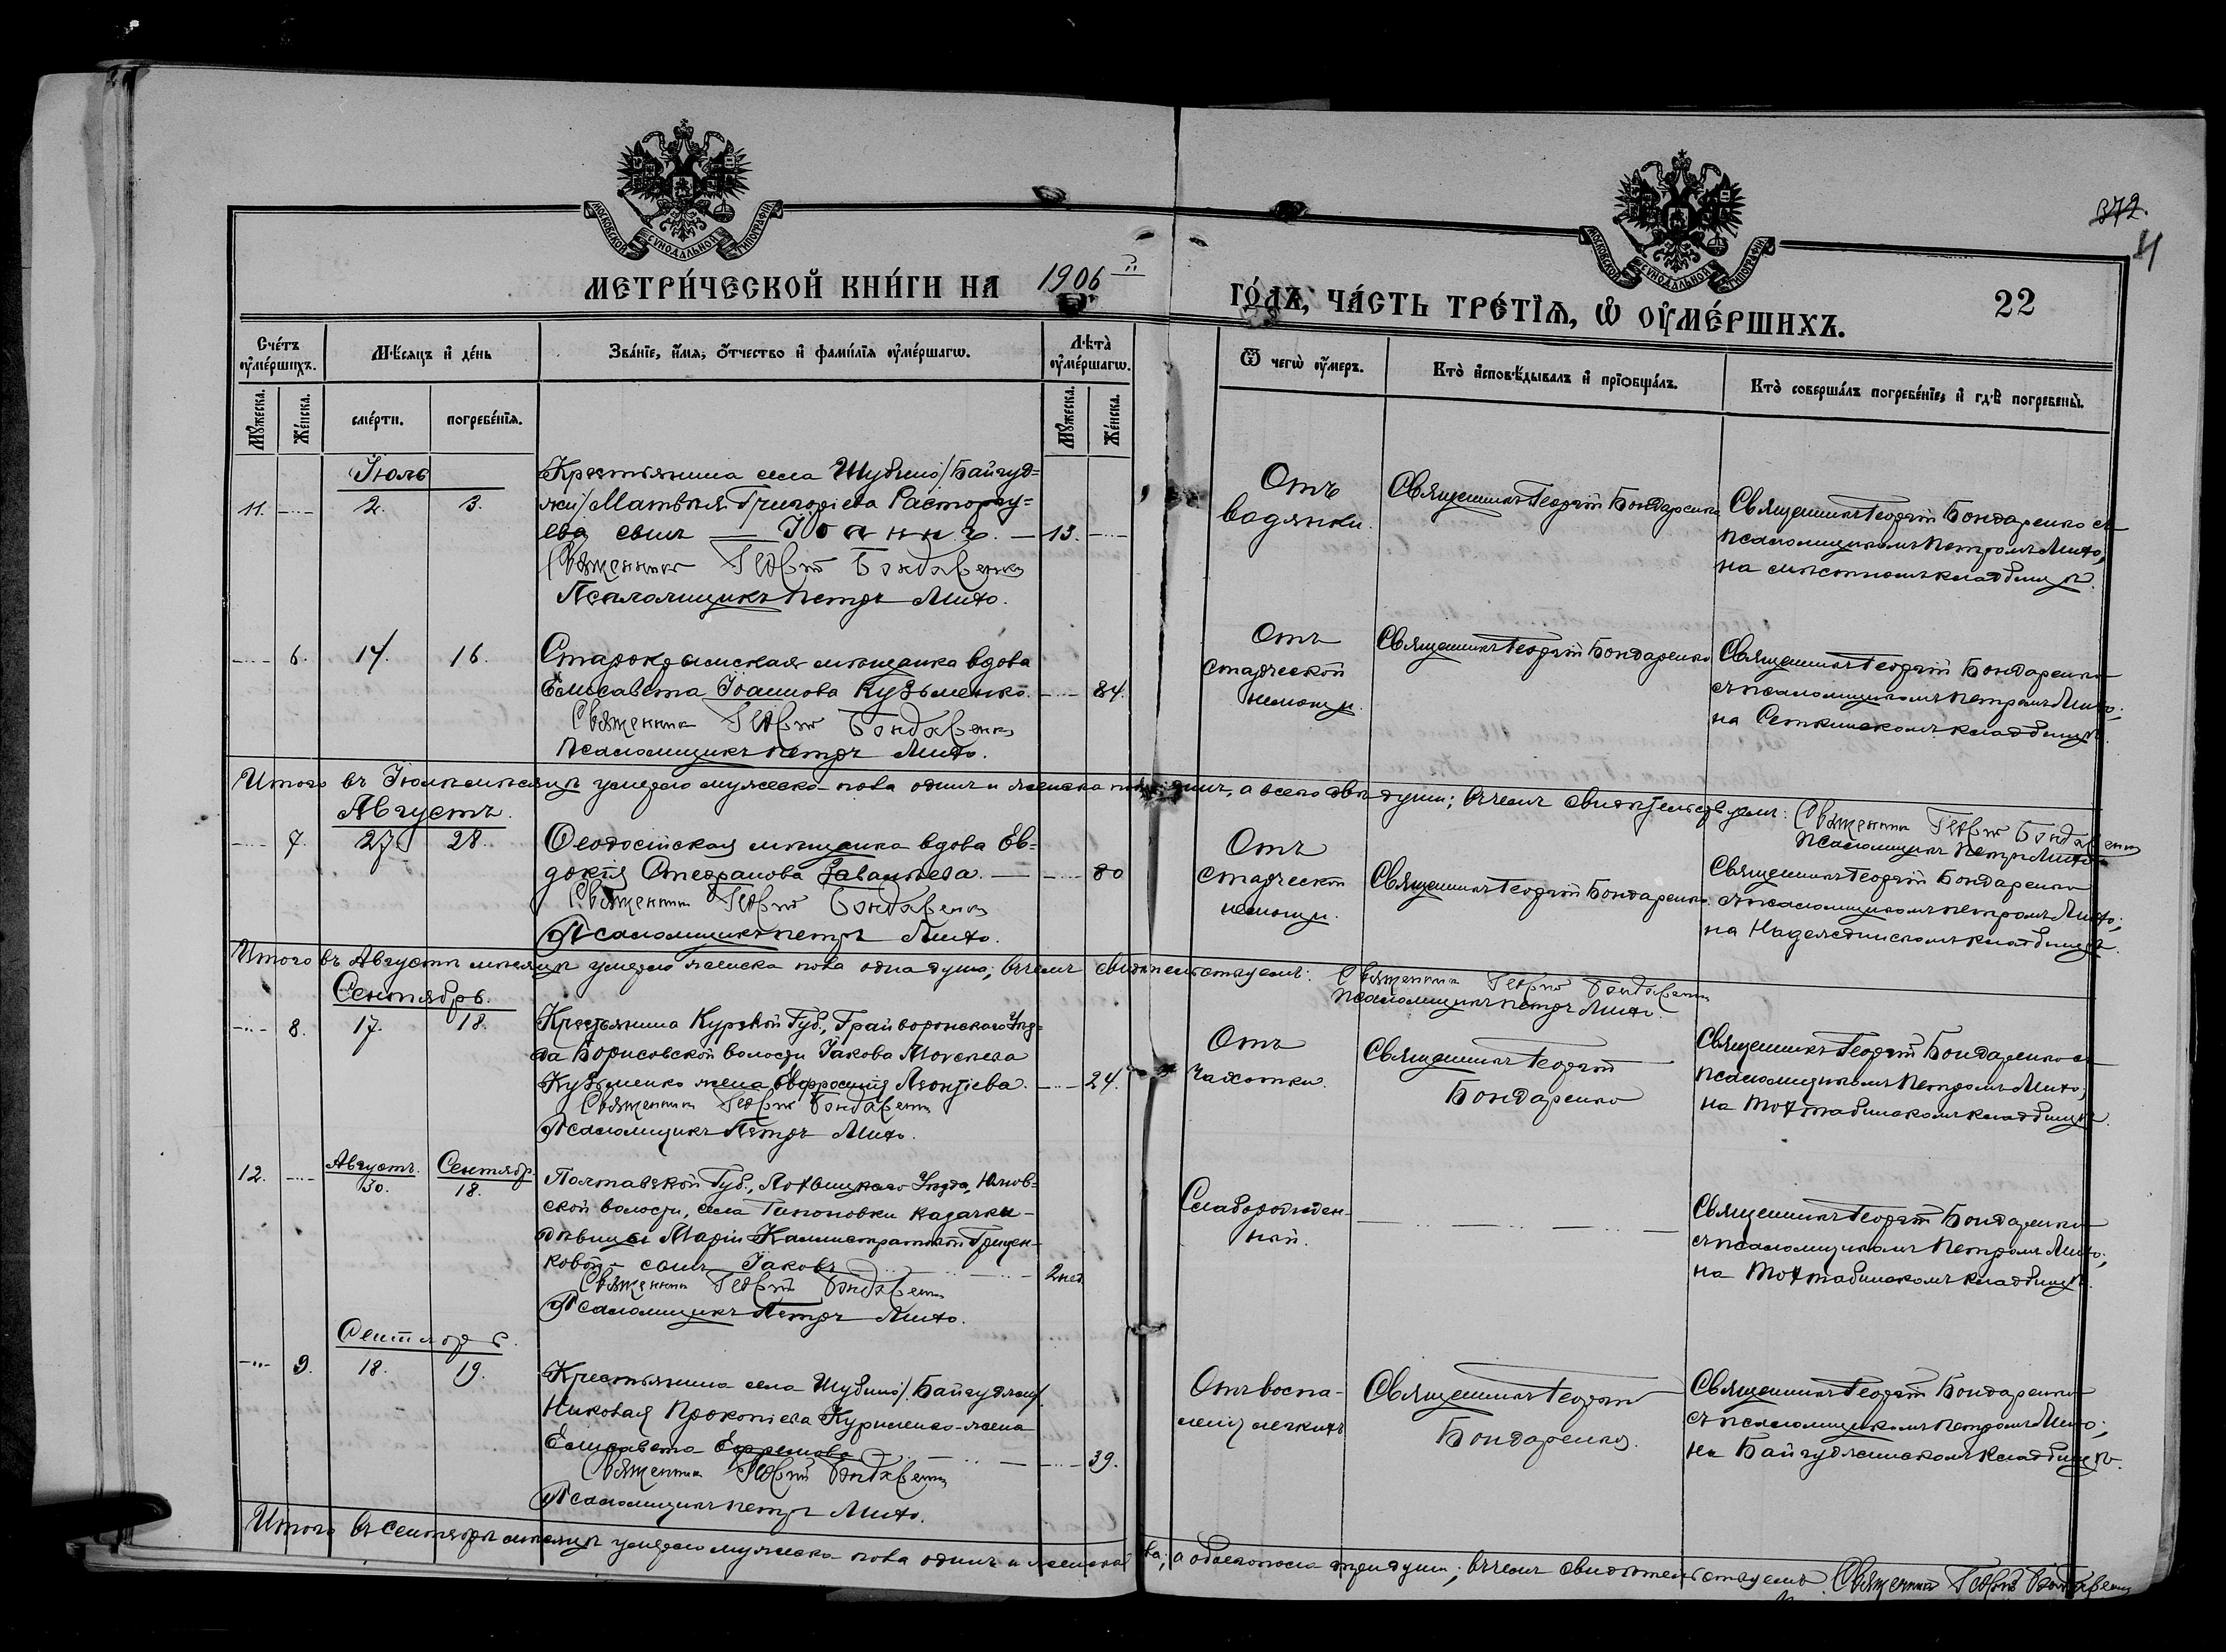 372.
МОСКОВСКОЙ СѴНОДАЛЬНОЙ ТИПОГРАФІИ
МОСКОВСКОЙ СѴНОДАЛЬНОЙ ТИПОГРАФІИ
МЕТРИ́ЧЕСКОЙ КНИ́ГИ НА 1906 ГО́ДЪ, ЧА́СТЬ ТРЕ́ТІѦ, Ѡ ОУМЕ́РШИХЪ.
22
Сче́тъ оуме́ршихъ.
Мѣ́сяцъ и де́нь
Зва́ніе, и́мя, о́тчество и фами́лія оуме́ршагѡ.
Лѣта̀ оуме́ршагѡ.
Ѿ чегѡ̀ оу́меръ.
Кто̀ исповѣ́дывалъ и пріобща́лъ.
Кто̀ соверша́лъ погребе́ніе, и гдѣ̀ погребены̀.
Му́жеска.
Же́нска.
сме́рти.
погребе́нія.
Му́жеска.
Же́нска.
Іюль
11.
2.
3.
Крестьянина села Шубино /Байгуд-
жи/ Матвѣя Григоріева Расторгу-
ева сынъ — Іоаннъ. — 13.
Священникъ Георгій Бондаренко
Псаломщикъ Петръ Михо.
Отъ
водянки.
Священникъ Георгій Бондаренко
Священникъ Георгій Бондаренко съ
псаломщикомъ Петромъ Михо,
на мѣстномъ кладбищѣ.
6.
14.
16.
Старокрымская мѣщанка вдова
Елисавета Іоаннова Кузьменко. 84.
Священникъ Георгій Бондаренко
Псаломщикъ Петръ Михо.
Отъ
старческой
немощи.
Священникъ Георгій Бондаренко
Священникъ Георгій Бондаренко
съ псаломщикомъ Петромъ Михо;
на кладбищѣ.
Итого въ Іюлѣ мѣсяцѣ умерло мужеска пола одинъ и женска пола одинъ, а всего двѣ души; въ чемъ свидѣтельствуемъ: Священникъ Георгій Бондаренко
Псаломщикъ Петръ Михо
Августъ.
7.
27.
28.
Ѳеодосійская мѣщанка вдова Ев-
докія Стефанова — 80
Священникъ Георгій Бондаренко
Псаломщикъ Петръ Михо.
Отъ
старческой
немощи.
Священникъ Георгій Бондаренко.
Священникъ Георгій Бондаренко
съ псаломщикомъ Петромъ Михо;
на кладбищѣ.
Итого въ Августѣ мѣсяцѣ умерло женска пола одна душа; въ чемъ свидѣтельствуемъ: Священникъ Георгій Бондаренко
Псаломщикъ Петръ Михо.
Сентябрь.
8.
17.
18.
Крестьянина Курской Губ., Грайворонскаго Уѣз-
да Борисовской волости Іакова Моисеева
Кузьменко жена Евфросинія Леонтіева. 24.
Священникъ Георгій Бондаренко
Псаломщикъ Петръ Михо.
Отъ
чахотки.
Священникъ Георгій
Бондаренко
Священникъ Георгій Бондаренко съ
псаломщикомъ Петромъ Михо;
на кладбищѣ.
12.
Августъ. 30.
Сентябр. 18.
Полтавской Губ., Лохвицкаго Уѣзда, Юсков-
ской волости, села казачки-
дѣвицы Маріи Каллистратовой Грицен-
ковой — сынъ Іаковъ — 2 нед.
Священникъ Георгій Бондаренко
Псаломщикъ Петръ Михо.
Слаборожден-
ный.
Священникъ Георгій Бондаренко
съ псаломщикомъ Петромъ Михо;
на кладбищѣ.
Сентябрь.
9.
18.
19.
Крестьянина села Шубино /Байгуджи/
Николая Прокопіева Курисенко жена
Елисавета Ефремова — 39.
Священникъ Георгій Бондаренко
Псаломщикъ Петръ Михо.
Отъ воспа-
ленія легкихъ
Священникъ Георгій
Бондаренко.
Священникъ Георгій Бондаренко
съ псаломщикомъ Петромъ Михо;
на Байгуджинскомъ кладбищѣ.
Итого въ Сентябрѣ мѣсяцѣ умерло мужеска пола одинъ и женска два; а обоего пола три души; въ чемъ свидѣтельствуемъ: Священникъ Георгій Бондаренко